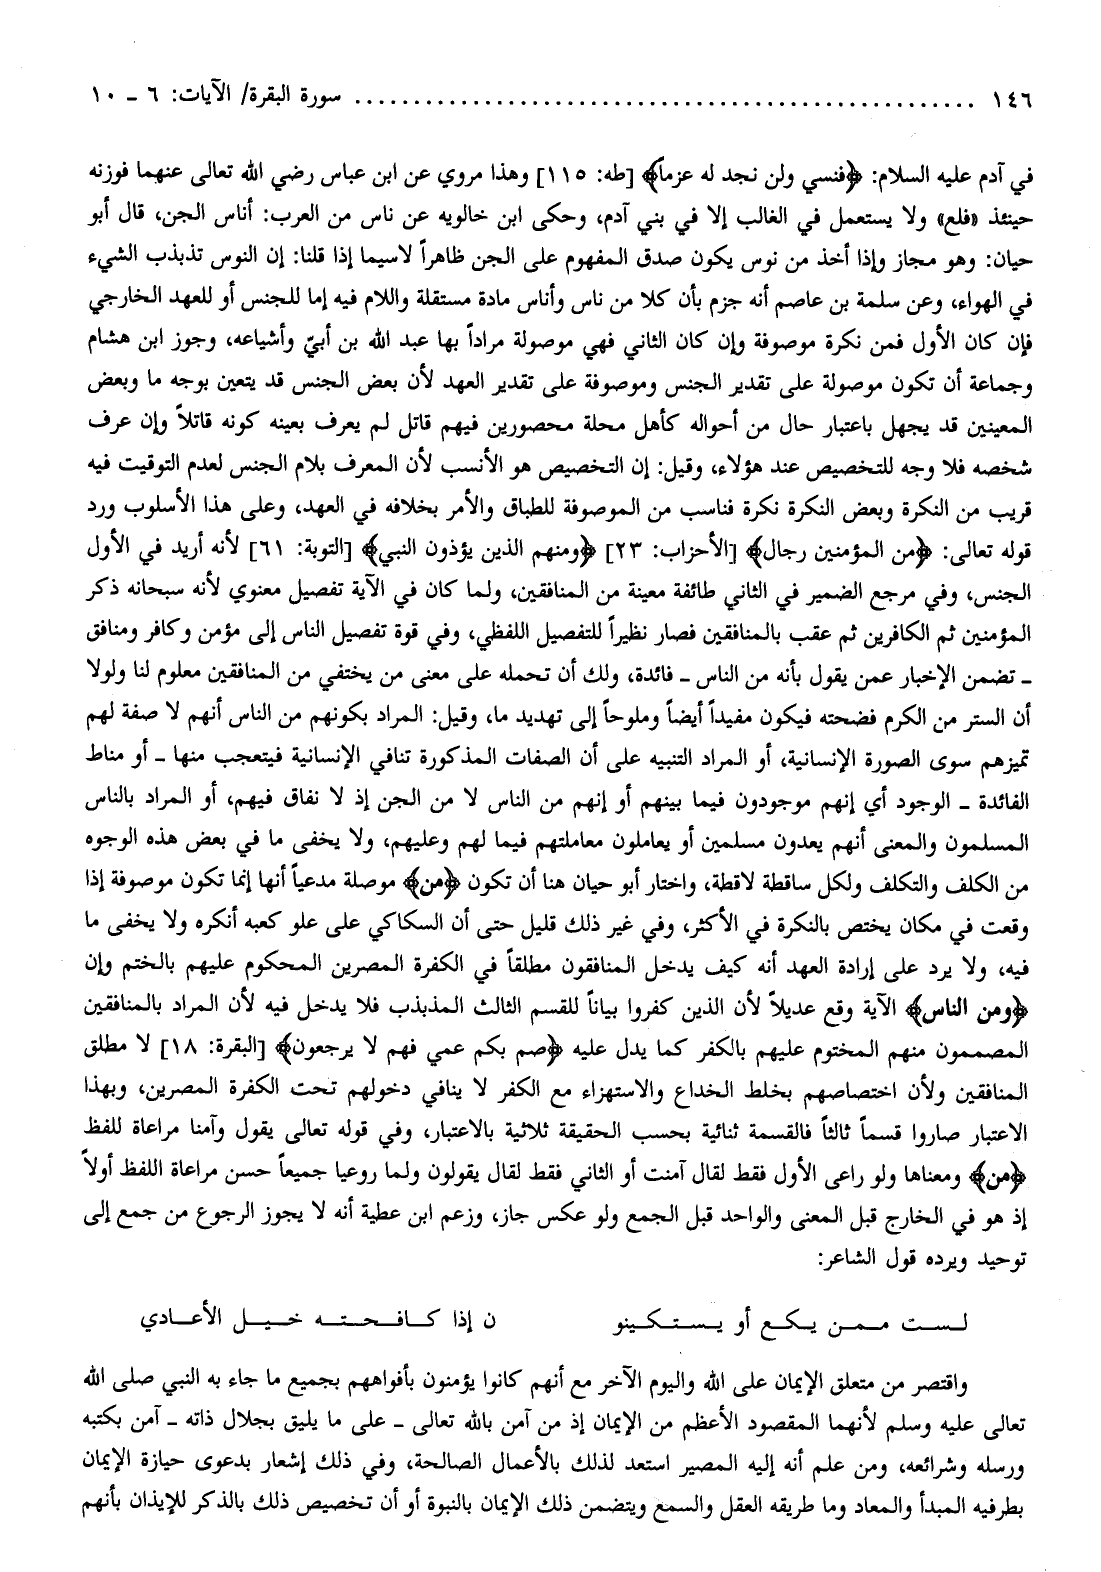 ١٤٦ ..................................................... سورة البقرة/ الآيات: ٦ ـ ١٠
في آدم عليه السلام: ﴿فنسي ولن نجد له عزماً﴾ [طه: ١١٥] وهذا مروي عن ابن عباس رضي الله تعالى عنهما فوزنه
حينئذ «فلع» ولا يستعمل في الغالب إلا في بني آدم، وحكى ابن خالويه عن ناس من العرب: أناس الجن، قال أبو
حيان: وهو مجاز وإذا أخذ من نوس يكون صدق المفهوم على الجن ظاهراً لاسيما إذا قلنا: إن النوس تذبذب الشيء
في الهواء، وعن سلمة بن عاصم أنه جزم بأن كلا من ناس وأناس مادة مستقلة واللام فيه إما للجنس أو للعهد الخارجي
فإن كان الأول فمن نكرة موصوفة وإن كان الثاني فهي موصولة مراداً بها عبد الله بن أبيّ وأشياعه، وجوز ابن هشام
وجماعة أن تكون موصولة على تقدير الجنس وموصوفة على تقدير العهد لأن بعض الجنس قد يتعين بوجه ما وبعض
المعينين قد يجهل باعتبار حال من أحواله كأهل محلة محصورين فيهم قاتل لم يعرف بعينه كونه قاتلاً وإن عرف
شخصه فلا وجه للتخصيص عند هؤلاء، وقيل: إن التخصيص هو الأنسب لأن المعرف بلام الجنس لعدم التوقيت فيه
قريب من النكرة وبعض النكرة نكرة فناسب من الموصوفة للطباق والأمر بخلافه في العهد، وعلى هذا الأسلوب ورد
قوله تعالى: ﴿من المؤمنين رجال﴾ [الأحزاب: ٢٣] ﴿ومنهم الذين يؤذون النبي﴾ [التوبة: ٦١] لأنه أريد في الأول
الجنس، وفي مرجع الضمير في الثاني طائفة معينة من المنافقين، ولما كان في الآية تفصيل معنوي لأنه سبحانه ذكر
المؤمنين ثم الكافرين ثم عقب بالمنافقين فصار نظيراً للتفصيل اللفظي، وفي قوة تفصيل الناس إلى مؤمن وكافر ومنافق
ـ تضمن الإخبار عمن يقول بأنه من الناس ـ فائدة، ولك أن تحمله على معنى من يختفي من المنافقين معلوم لنا ولولا
أن الستر من الكرم فضحته فيكون مفيداً أيضاً وملوحاً إلى تهديد ما، وقيل: المراد بكونهم من الناس أنهم لا صفة لهم
تميزهم سوى الصورة الإنسانية، أو المراد التنبيه على أن الصفات المذكورة تنافي الإنسانية فيتعجب منها ـ أو مناط
الفائدة ـ الوجود أي إنهم موجودون فيما بينهم أو إنهم من الناس لا من الجن إذ لا نفاق فيهم، أو المراد بالناس
المسلمون والمعنى أنهم يعدون مسلمين أو يعاملون معاملتهم فيما لهم وعليهم، ولا يخفى ما في بعض هذه الوجوه
من الكلف والتكلف ولكل ساقطة لاقطة، واختار أبو حيان هنا أن تكون ﴿من﴾ موصلة مدعياً أنها إنما تكون موصوفة إذا
وقعت في مكان يختص بالنكرة في الأكثر، وفي غير ذلك قليل حتى أن السكاكي على علو كعبه أنكره ولا يخفى ما
فيه، ولا يرد على إرادة العهد أنه كيف يدخل المنافقون مطلقاً في الكفرة المصرين المحكوم عليهم بالختم وإن
﴿ومن الناس﴾ الآية وقع عديلاً لأن الذين كفروا بياناً للقسم الثالث المذبذب فلا يدخل فيه لأن المراد بالمنافقين
المصممون منهم المختوم عليهم بالكفر كما يدل عليه ﴿صم بكم عمي فهم لا يرجعون﴾ [البقرة: ١٨] لا مطلق
المنافقين ولأن اختصاصهم بخلط الخداع والاستهزاء مع الكفر لا ينافي دخولهم تحت الكفرة المصرين، وبهذا
الاعتبار صاروا قسماً ثالثاً فالقسمة ثنائية بحسب الحقيقة ثلاثية بالاعتبار، وفي قوله تعالى يقول وآمنا مراعاة للفظ
﴿من﴾ ومعناها ولو راعى الأول فقط لقال آمنت أو الثاني فقط لقال يقولون ولما روعيا جميعاً حسن مراعاة اللفظ أولاً
إذ هو في الخارج قبل المعنى والواحد قبل الجمع ولو عكس جاز، وزعم ابن عطية أنه لا يجوز الرجوع من جمع إلى
توحيد ويرده قول الشاعر:
لست ممن يكع أو يستكينو ن إذا كافحته خيل الأعادي
واقتصر من متعلق الإيمان على الله واليوم الآخر مع أنهم كانوا يؤمنون بأفواههم بجميع ما جاء به النبي صلى الله
تعالى عليه وسلم لأنهما المقصود الأعظم من الإيمان إذ من آمن بالله تعالى ـ على ما يليق بجلال ذاته ـ آمن بكتبه
ورسله وشرائعه، ومن علم أنه إليه المصير استعد لذلك بالأعمال الصالحة، وفي ذلك إشعار بدعوى حيازة الإيمان
بطرفيه المبدأ والمعاد وما طريقه العقل والسمع ويتضمن ذلك الإيمان بالنبوة أو أن تخصيص ذلك بالذكر للإيذان بأنهم